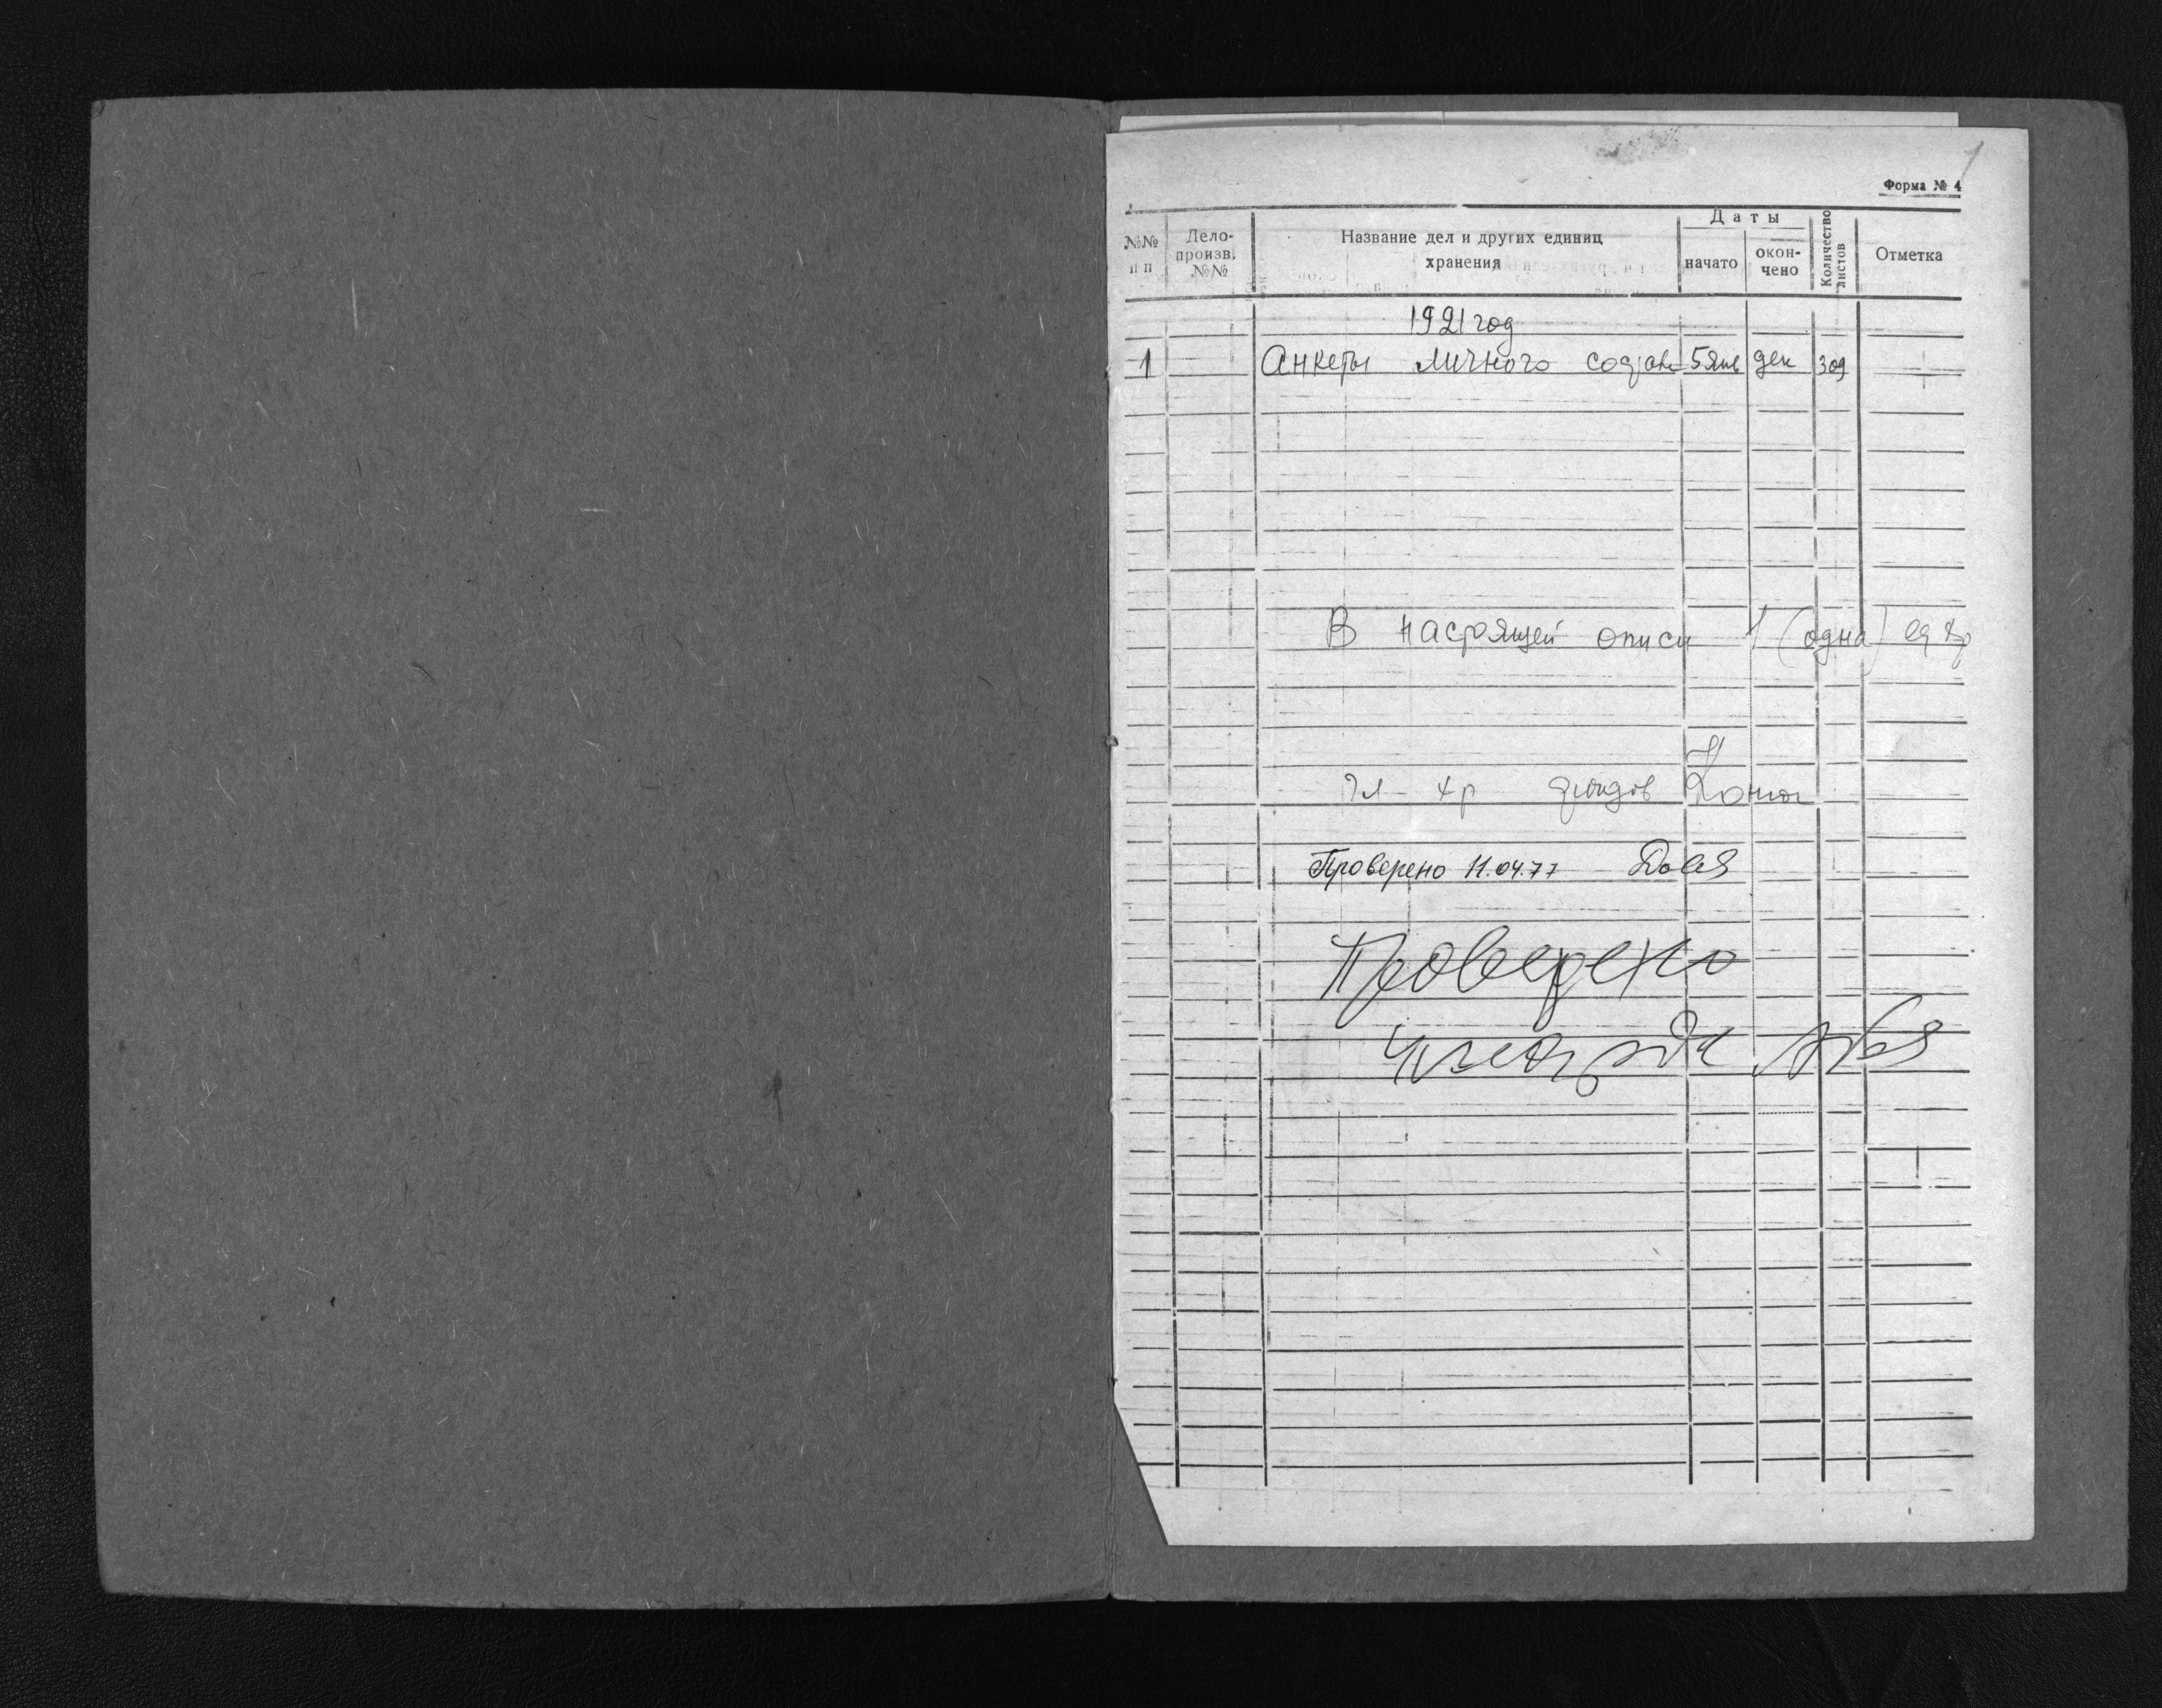 1
Форма № 4
№№ п п
Дело-произв. №№
Название дел и других единиц хранения
Даты
начато
окончено
Количество листов
Отметка
1921 год
1 Анкеты личного состава 5 янв дек 309
В настоящей описи 1 (одна) ед хр
Гл. хр фондов
Проверено 11.04.77
Проверено